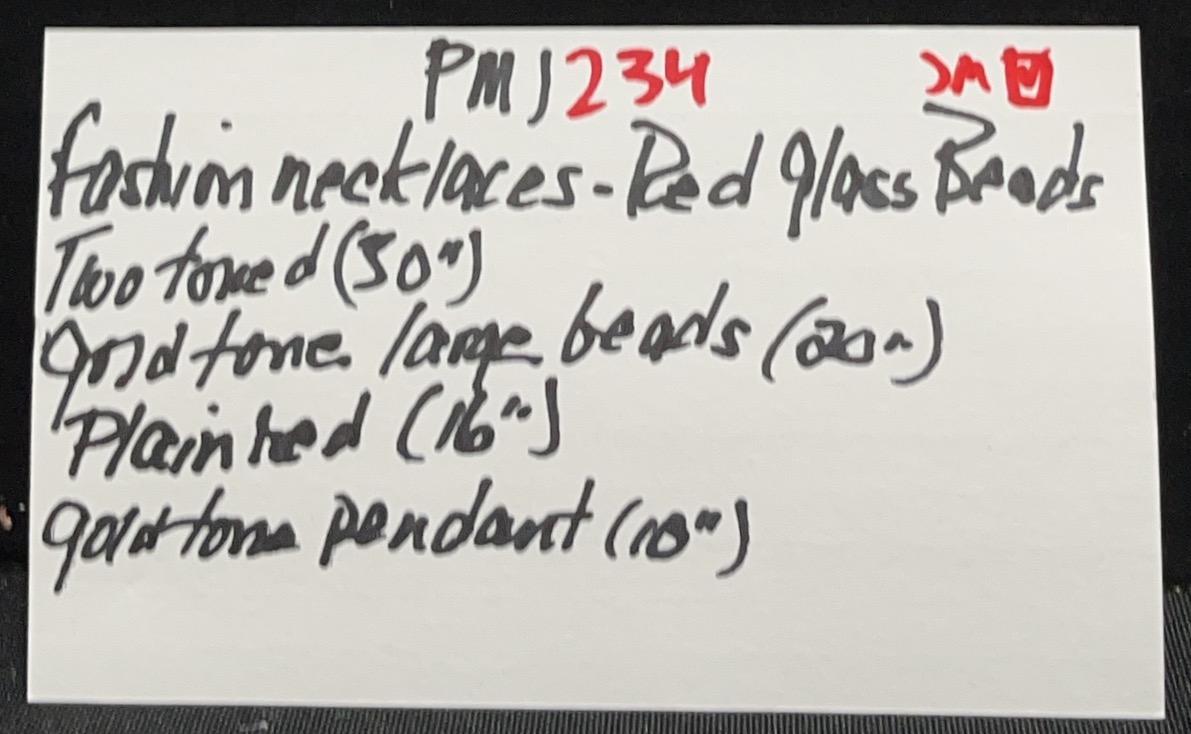 PMJ 234 JM
Fashion necklaces - Red glass Beads
Two toned (30")
gold tone large beads (20")
Plain red (16")
gold tone pendant (18")